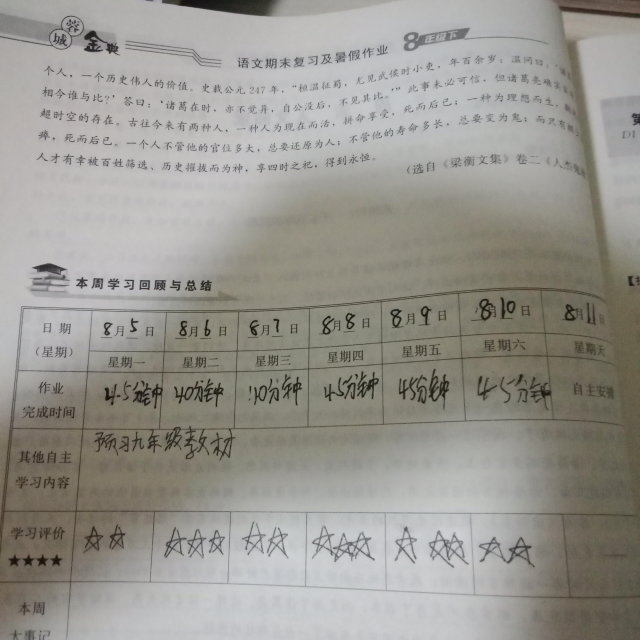 蓉城
金典
语文期末复习及暑假作业
8年级下
个人，一个历史伟人的价值。史载公元247年，“桓温征蜀，尤见武侯时小吏，年百余岁；温问曰：‘诸
相今谁与比？’答曰：‘诸葛在时，亦不觉异，自公没后，不见其比。’”此事未必可信，但诸葛亮确实
超时空的存在。古往今来有两种人，一种人为现在而活，拼命享受，死而后已；一种为理想而生，鞠躬
瘁，死而后已。一个人不管他的官位多大，总要还原为人；不管他的寿命多长，总要变为鬼；而只有
人才有幸被百姓筛选、历史擢拔而为神，享四时之祀，得到永恒。
（选自《梁衡文集》卷二《人杰
本周学习回顾与总结
日期 8月5日 8月6日 8月7日 8月8日 8月9日 8月10日 8月11日
（星期） 星期一 星期二 星期三 星期四 星期五 星期六 星期天
作业 45分钟 40分钟 40分钟 45分钟 45分钟 45分钟 自主安
完成时间
其他自主 预习九年级教材
学习内容
学习评价 ☆☆ ☆☆☆ ☆☆ ☆☆☆ ☆☆☆ ☆☆
★★★★
本周
大事记